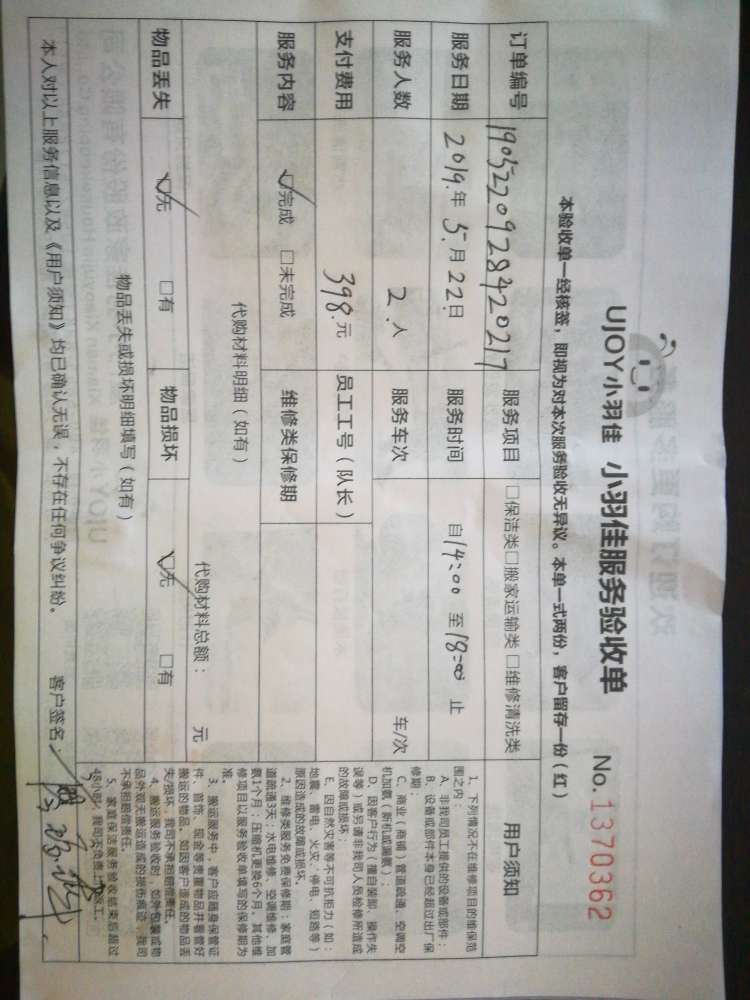 UJOY小羽佳 小羽佳服务验收单 No.1370362
本验收单一经核签，即视为对本次服务验收无异议。本单一式两份，客户留存一份（红）
订单编号 1905220928420217 服务项目 □保洁类□搬家运输类□维修清洗类
服务日期 2019年5月22日 服务时间 自14:00至18:00止
服务人数 2人 服务车次 车/次
支付费用 398元 员工工号（队长）
服务内容 ☑完成 □未完成 维修类保修期
代购材料明细（如有） 代购材料总额： 元
物品丢失 ☑无 □有 物品损坏 ☑无 □有
物品丢失或损坏明细填写（如有）
本人对以上服务信息以及《用户须知》均已确认无误，不存在任何争议纠纷。 客户签名：
用户须知
1、下列情况不在维修项目的维保范
围之内：
A、非我司员工提供的设备或部件；
B、设备或部件本身已经超过出厂保
修期；
C、商业（商铺）管道疏通、空调空
机加氨（新机或漏氨）；
D、因客户行为（擅自装卸、操作失
误等）或另请非我司人员检修所造成
的故障或损坏；
E、因自然灾害等不可抗拒力（如：
地震、雷电、火灾、停电、短路等）
原因造成的故障或损坏。
2、维修类服务免费保修期：家庭管
道疏通3天；水电维修、空调维修、加
氨1个月；压缩机更换6个月。其他维
修项目以服务验收单填写的保修期为
准。
3、搬运服务中，客户应随身保管证
件、首饰、现金等贵重物品并看管好
搬运的物品。如因客户造成的物品丢
失/损坏，我司不承担赔偿责任。
4、搬运服务验收时，如外包装或物
品外观无搬运造成的损伤痕迹，我司
不承担赔偿责任。
5、家庭保洁服务验收结束后超过
48小时，我司不负责上门返工。